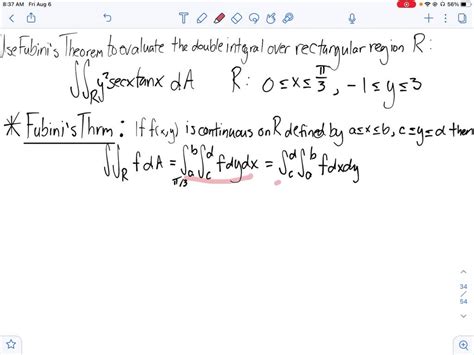 8:37 AM Fri Aug 6 56%
Use Fubini's Theorem to evaluate the double integral over rectangular region R:
∬_R y² secx tanx dA R: 0 ≤ x ≤ π/3, -1 ≤ y ≤ 3
* Fubini's Thrm: If f(x,y) is continuous on R defined by a≤x≤b, c≤y≤d then
∬_R f dA = ∫_a^b ∫_c^d f dy dx = ∫_c^d ∫_a^b f dx dy
π/3
34
/
54